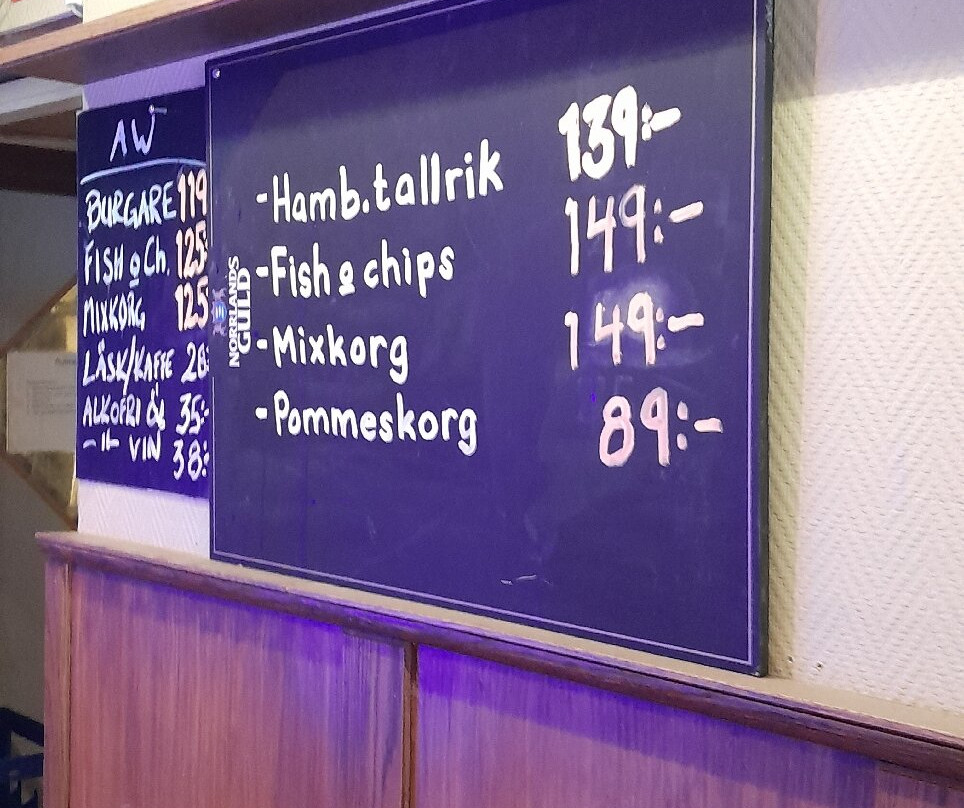 AW
BURGARE 119
FISH o Ch. 125:
MIXKORG 125
LÄSK/KAFFE 28:
ALKOFRI ÖL 35:-
-"- VIN 38:
NORRLANDS
GULD
-Hamb.tallrik 139:-
-Fish o chips 149:-
-Mixkorg 149:-
-Pommeskorg 89:-